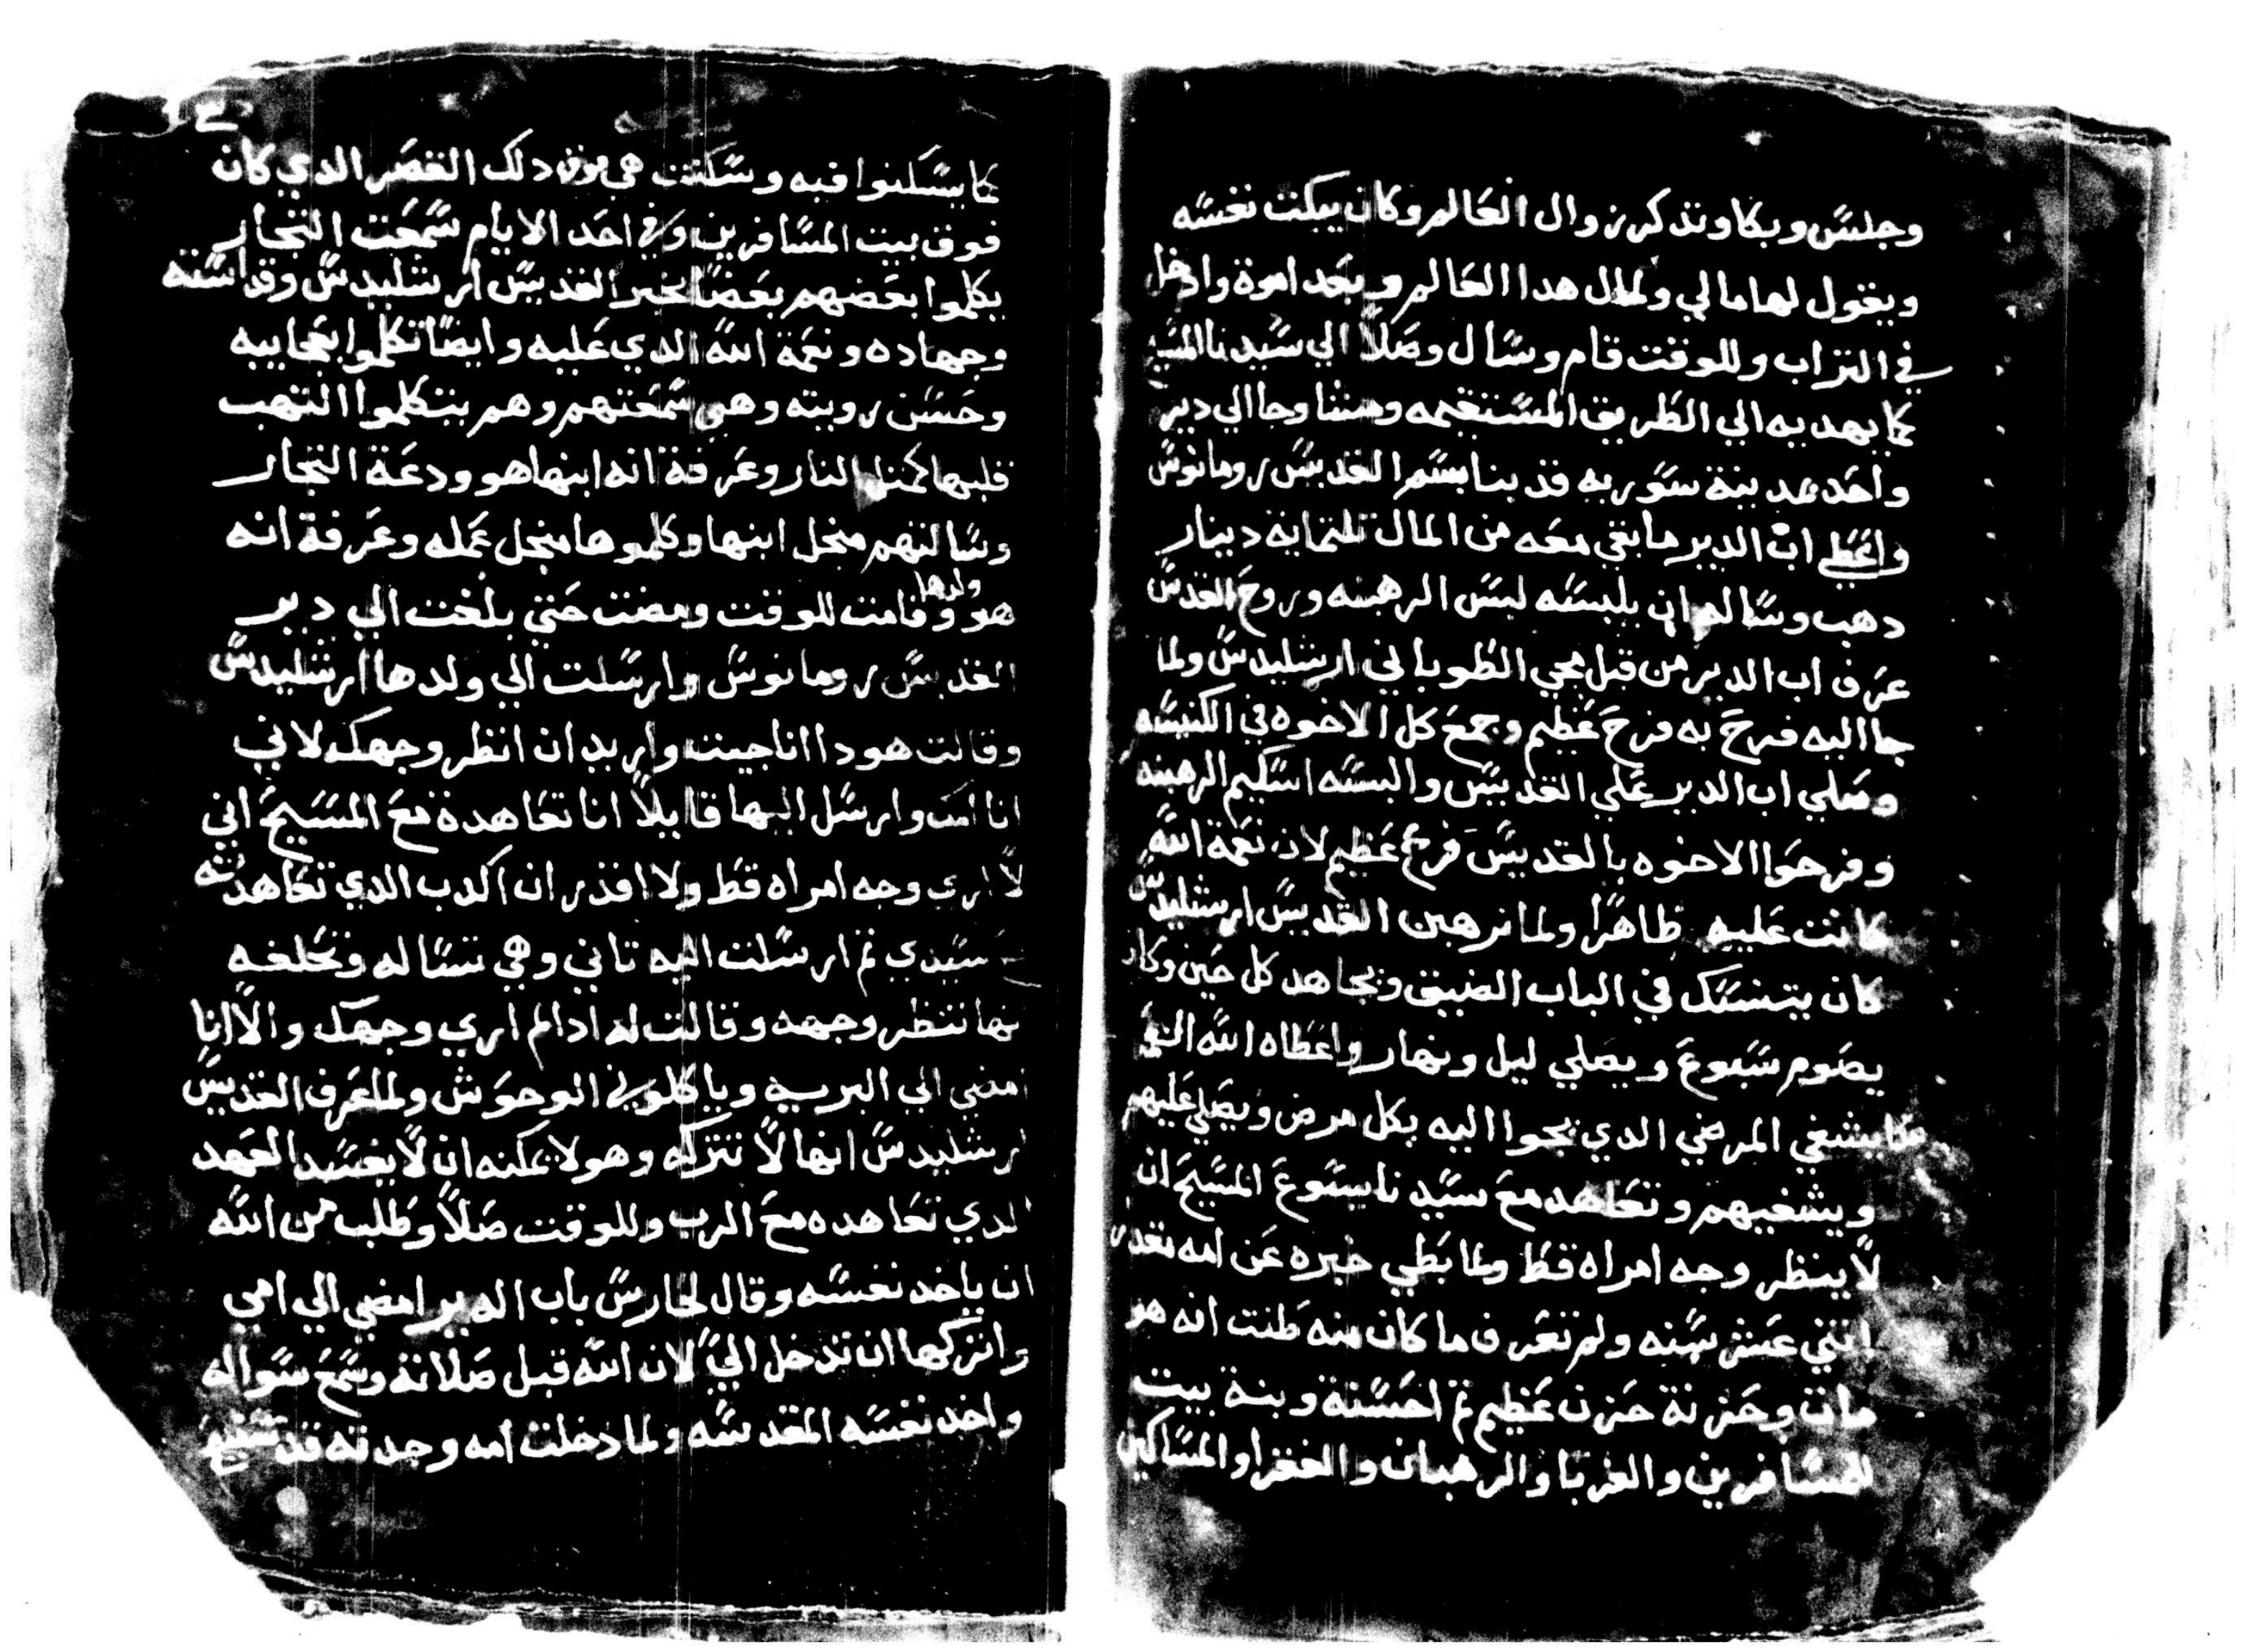 وجلس وبكا وتدكر زوال العالم وكان يبكت نفسه
ويقول لها مالي ولمال هدا العالم وبعد اموة وادخل
في التراب وللوقت قام وسال وصلا الي سيدنا المسيح
كما يهديه الي الطريق المستقيمه ومشا وجا الي دير
واحد مدينة سوريه قد بنا بسم القديس رومانوس
واعطي اب الدير ما بقي معه من المال تلتماية دينار
دهب وساله ان يلبسه لبس الرهبنه وروح القدس
عرف اب الدير من قبل مجي الطوباني ارشليدس ولما
جا اليه فرح به فرح عظيم وجمع كل الاخوه في الكنيسه
وصلي اب الدير علي القديس والبسه اسكيم الرهبنه
وفرحوا الاخوه بالقديس فرح عظيم لان نعمة الله
كانت عليه ظاهرا ولما ترهبن القديس ارشليدس
كان يتنسك في الباب الضيق ويجاهد كل حين وكان
يصوم سبوع ويصلي ليل ونهار واعطاه الله
كما يشفي المرضي الدي يجوا اليه بكل مرض ويصلي عليهم
ويشفيهم وتعاهد مع سيدنا يسوع المسيح ان
لا ينظر وجه امراه قط ولما بطي خبره عن امه تقدر
اتني عشر سنه ولم تعرف ما كان منه طنت انه هو
مات وحزنة حزن عظيم تم احسنة وبنة بيت
للمسافرين والغربا والرهبان والفقرا والمساكين
كما يسكنوا فيه وسكنت هي فوق دلك القصر الدي كان
فوق بيت المسافرين وفي احد الايام سمعت التجار
يكلموا بعضهم بعضا بخبر القديس ارشليدس وقداسته
وجهاده ونعمة الله الدي عليه وايضا تكلموا بعجايبه
وحسن رويته وهي سمعتهم وهم يتكلموا التهب
قلبها كمتل النار وعرفة انه ابنها هو ودعة التجار
وسالتهم منجل ابنها وكلموها منجل عمله وعرفة انه
هو ولدها وقامت للوقت ومضت حتي بلغت الي دير
القديس رومانوس وارسلت الي ولدها ارشليدس
وقالت هودا انا جيت واريد ان انظر وجهك لاني
انا امك وارسل اليها قايلا انا تعاهدة مع المسيح اني
لا اري وجه امراه قط ولا اقدر ان اكدب الدي تعاهدته
سيدي تم ارسلت اليه تاني وهي تساله وتحلفه
بها تنظر وجهه وقالت له ادا لم اري وجهك والا انا
امضي الي البريه وياكلوني الوحوش ولما عرف القديس
ارشليدس انها لا تتركه وهو لا يمكنه ان لا يفسد العهد
الدي تعاهده مع الرب وللوقت صلا وطلب من الله
ان ياخد نفسه وقال لحارس باب الدير امضي الي امي
واتركها ان تدخل الي لان الله قبل صلاته وسمع سواله
واخد نفسه المقدسه ولما دخلت امه وجدته قد تنيح